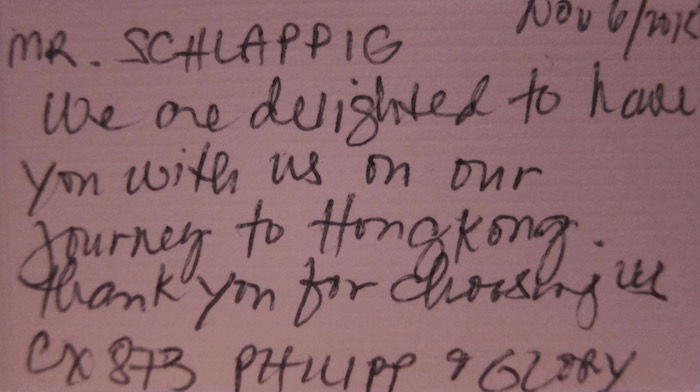 Nov 6/2015
MR. SCHLAPPIG
We are delighted to have
you with us on our
journey to Hongkong.
Thank you for choosing us
CX873 PHILIPP & GLORY